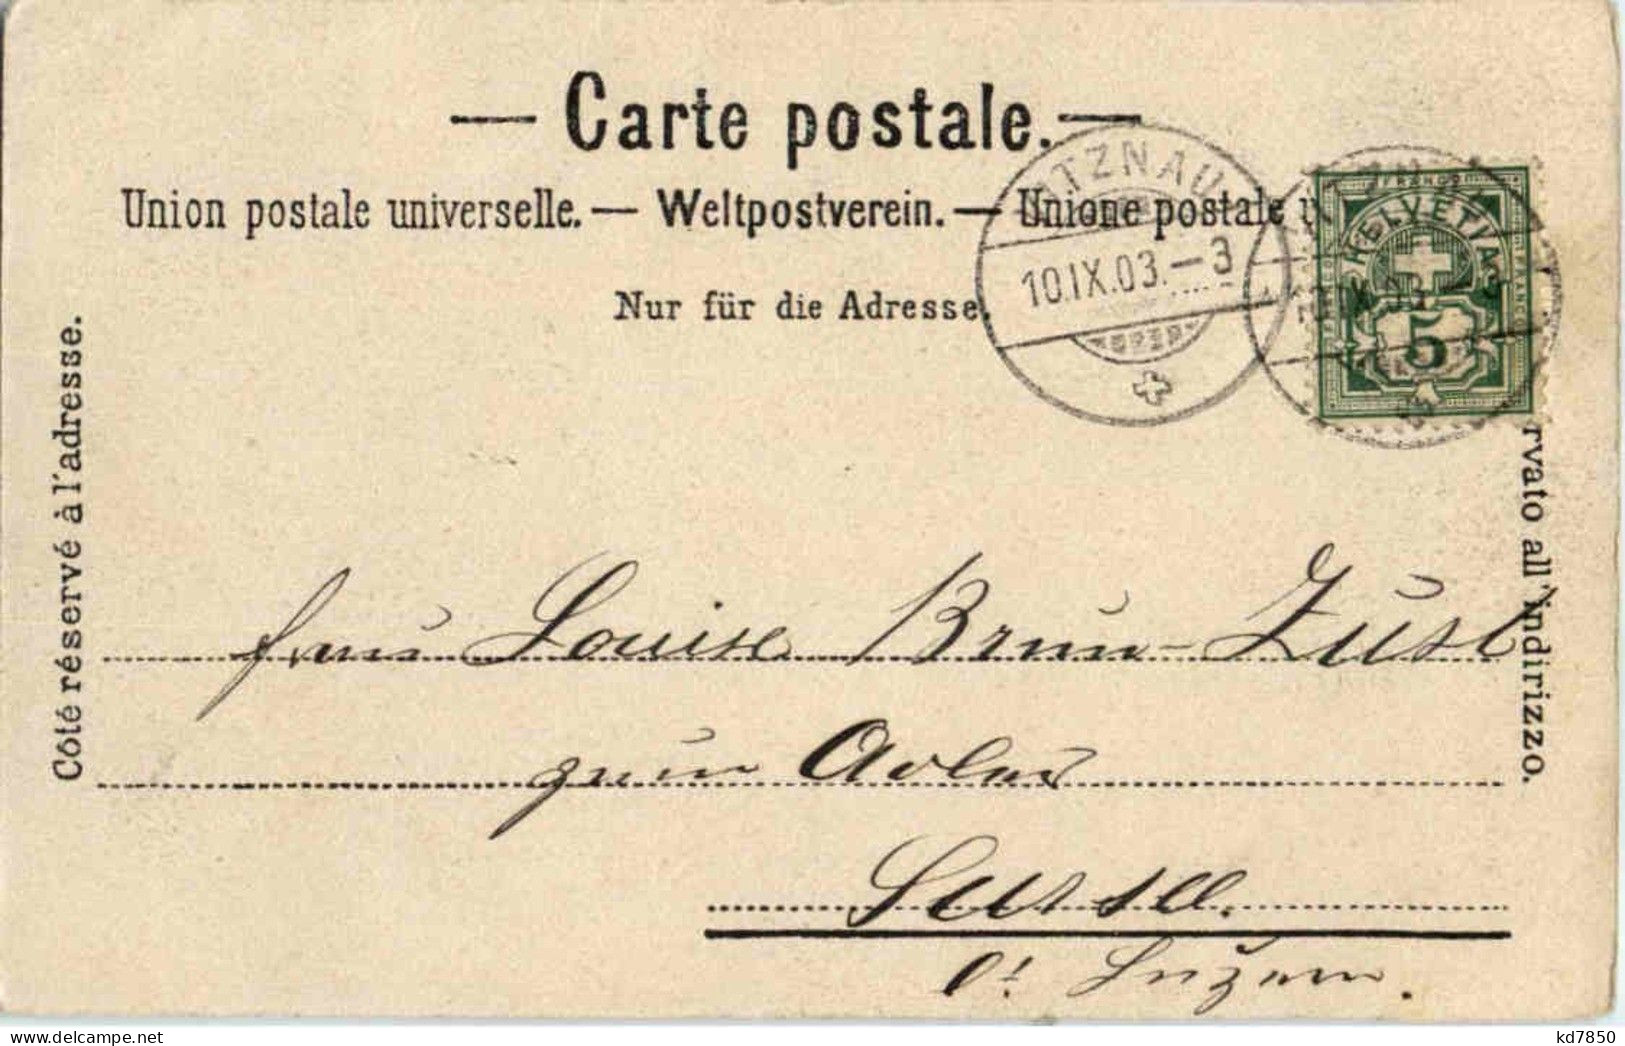 — Carte postale. —
Union postale universelle. — Weltpostverein. — Unione postale u
Nur für die Adresse.
Côté réservé à l'adresse.
rvato all'indirizzo.
ITZNAU
10.IX.03.–3
HELVETIA
FRANCO
5
Frau Louise Brun-Züst
zum Adler
Sursee.
Ct Luzern.
www.delcampe.net
kd7850